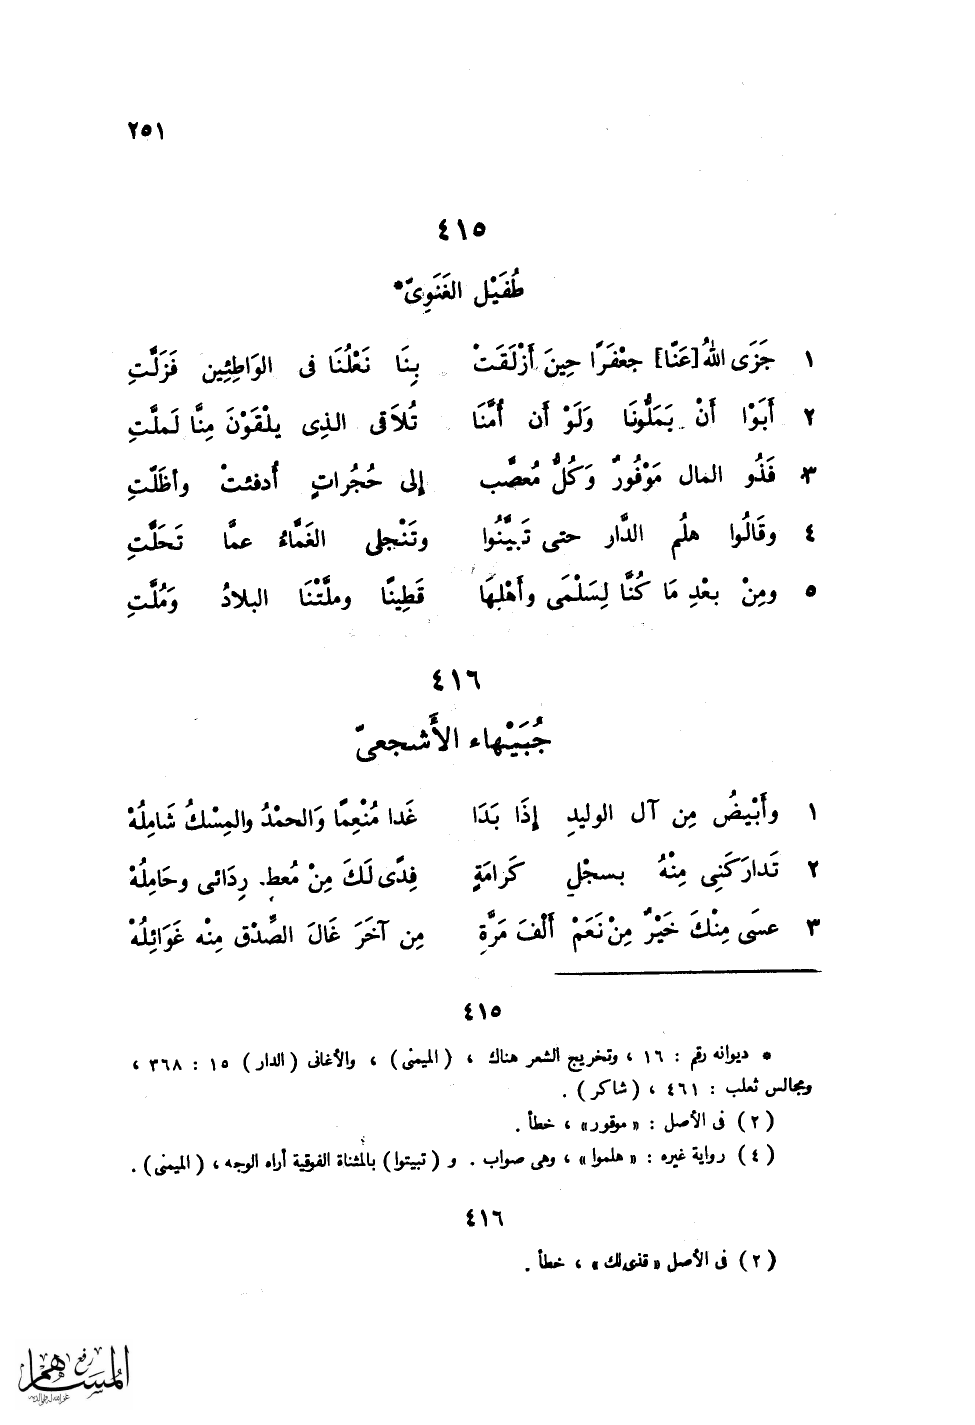 ٢٥١
٤١٥
طُفَيْل الغَنَوِىّ*
١ جَزَى اللهُ [عَنَّا] جعْفَرًا حِينَ أَزْلَقَتْ بِنَا نَعْلُنَا فى الوَاطِئِين فَزَلَّتِ
٢ أَبَوْا أَنْ يَمَلُّونَا وَلَوْ أن أُمَّنَا تُلَاقى الذِى يلْقَوْنَ مِنَّا لَملَّتِ
٣ فَذُو المال مَوْفُورٌ وَكُلُّ مُعصَّب إلى حُجُراتٍ أُدفئتْ وأظَلّتِ
٤ وقَالُوا هلُم الدَّار حتى تَبيَّنُوا وتَنْجلى الغَمَّاءُ عمَّا تَحَلَّتِ
٥ ومِنْ بعْدِ مَا كُنَّا لِسَلْمَى وأَهْلِهَا قَطِينًا وملَّتْنَا البلادُ وَمُلَّتِ
٤١٦
جُبَيْهاء الأَشجعىّ
١ وأَبْيضُ مِن آل الوليدِ إذَا بَدَا غَدا مُنْعِمًا وَالحمْدُ والمِسْكُ شَامِلُهْ
٢ تَدارَكَنِى مِنْهُ بسجْلِ كَرامَةٍ فِدًى لَكَ مِنْ مُعطٍ رِدَائى وحَامِلُهْ
٣ عسَى مِنْكَ خَيْرٌ مِنْ نَعَمْ أَلْفَ مَرَّةٍ مِن آخَرَ غَالَ الصِّدْق مِنْه غَوَائِلُهْ
٤١٥
* ديوانه رقم : ١٦ ، وتخريج الشعر هناك ، (الميمنى) ، والأغانى (الدار) ١٥ : ٣٦٨ ،
ومجالس ثعلب : ٤٦١ ، (شاكر) .
(٢) فى الأصل : «موقور» ، خطأ .
(٤) رواية غيره : «هلموا» ، وهى صواب . و (تبيتوا) بالمثناة الفوقية أراه الوجه ، (الميمنى) .
٤١٦
(٢) فى الأصل «قذى لك» ، خطأ .